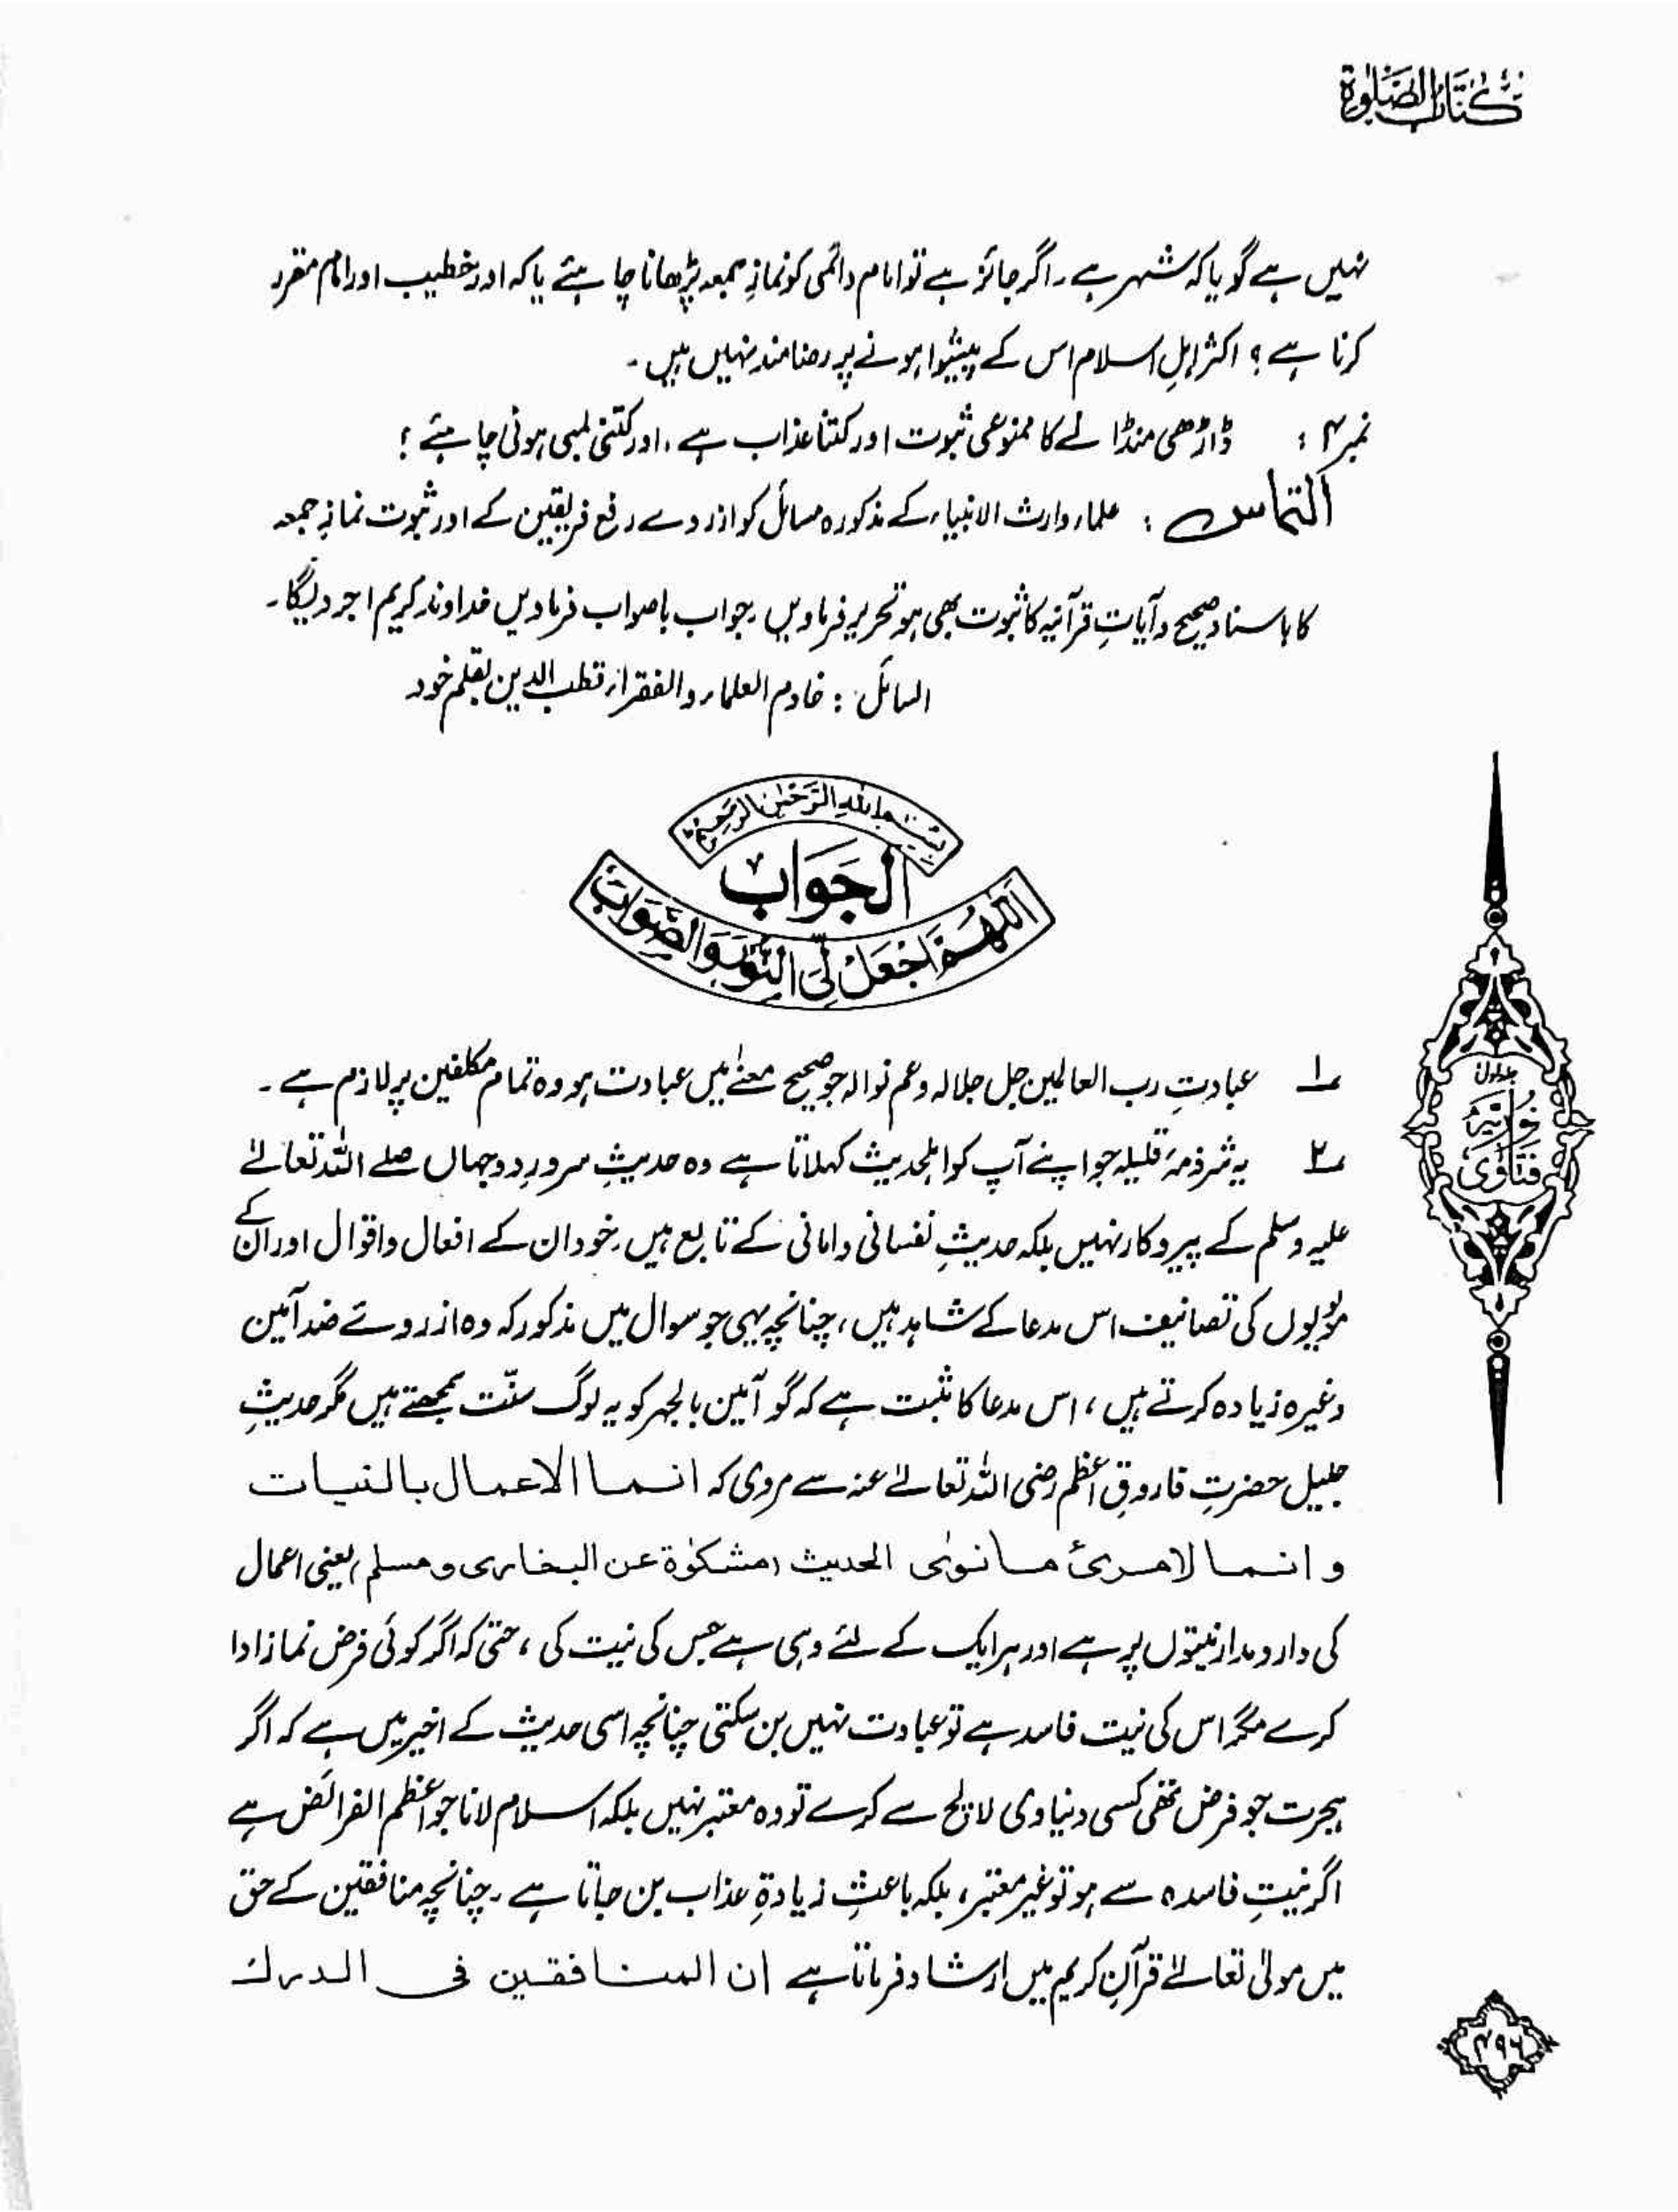 كتاب الصلوٰة
نہیں ہے گویا کہ شہر ہے ۔ اگر جائز ہے تو امام دائمی کو نمازِ جمعہ پڑھانا چاہئے یا کہ اور خطیب اور امام مقرر
کرنا ہے ؟ اکثر اہلِ اسلام اس کے پیشوا ہونے پر رضامند نہیں ہیں ۔
نمبر۴ : ڈاڑھی منڈانے کا ممنوعی ثبوت اور کتنا عذاب ہے ، اور کتنی لمبی ہونی چاہئے ؟
التماس : علماء وارث الانبیاء کے مذکورہ مسائل کو ازروے رفع فریقین کے اور ثبوت نمازِ جمعہ
کا باسناد صحیح و آیاتِ قرآنیہ کا ثبوت بھی ہو تحریر فرماویں ۔ جواب باصواب فرماویں خداوند کریم اجر دیگا ۔
السائل : خادم العلماء والفقراء قطب الدین بقلم خود
بسم الله الرحمٰن الرحيم
الجَوَاب
اللهم اجعل لي النور والصواب
۱ عبادتِ رب العالمین جل جلالہ وعم نوالہ جو صحیح معنےٰ میں عبادت ہو وہ تمام مکلفین پر لازم ہے ۔
۲ یہ شرذمۂ قلیلہ جو اپنے آپ کو اہلحدیث کہلاتا ہے وہ حدیثِ سرورِ دوجہاں صلے اللہ تعالےٰ
علیہ وسلم کے پیروکار نہیں بلکہ حدیثِ نفسانی و امانی کے تابع ہیں ۔ خود ان کے افعال و اقوال اور ان کے
مولویوں کی تصانیف اس مدعا کے شاہد ہیں ، چنانچہ یہی جو سوال میں مذکور کہ وہ ازروئے ضد آمین
وغیرہ زیادہ کرتے ہیں ، اس مدعا کا مثبت ہے کہ گو آمین بالجہر کو یہ لوگ سنّت سمجھتے ہیں مگر حدیثِ
جلیل حضرتِ فاروقِ اعظم رضی اللہ تعالےٰ عنہ سے مروی کہ انما الاعمال بالنیات
و انما لامریٔ ما نوٰی الحدیث (مشکوٰۃ عن البخاری و مسلم) یعنی اعمال
کی دارومدار نیتوں پر ہے اور ہر ایک کے لئے وہی ہے جس کی نیت کی ، حتی کہ اگر کوئی فرض نماز ادا
کرے مگر اس کی نیت فاسد ہے تو عبادت نہیں بن سکتی چنانچہ اسی حدیث کے اخیر میں ہے کہ اگر
ہجرت جو فرض تھی کسی دنیاوی لالچ سے کرے تو وہ معتبر نہیں بلکہ اسلام لانا جو اعظم الفرائض ہے
اگر نیتِ فاسدہ سے ہو تو غیر معتبر ، بلکہ باعثِ زیادۃِ عذاب بن جاتا ہے ۔ چنانچہ منافقین کے حق
میں مولیٰ تعالےٰ قرآنِ کریم میں ارشاد فرماتا ہے ان المنافقین فی الدرك
جلد اول
نوریہ
فتاوی
۴۹۶